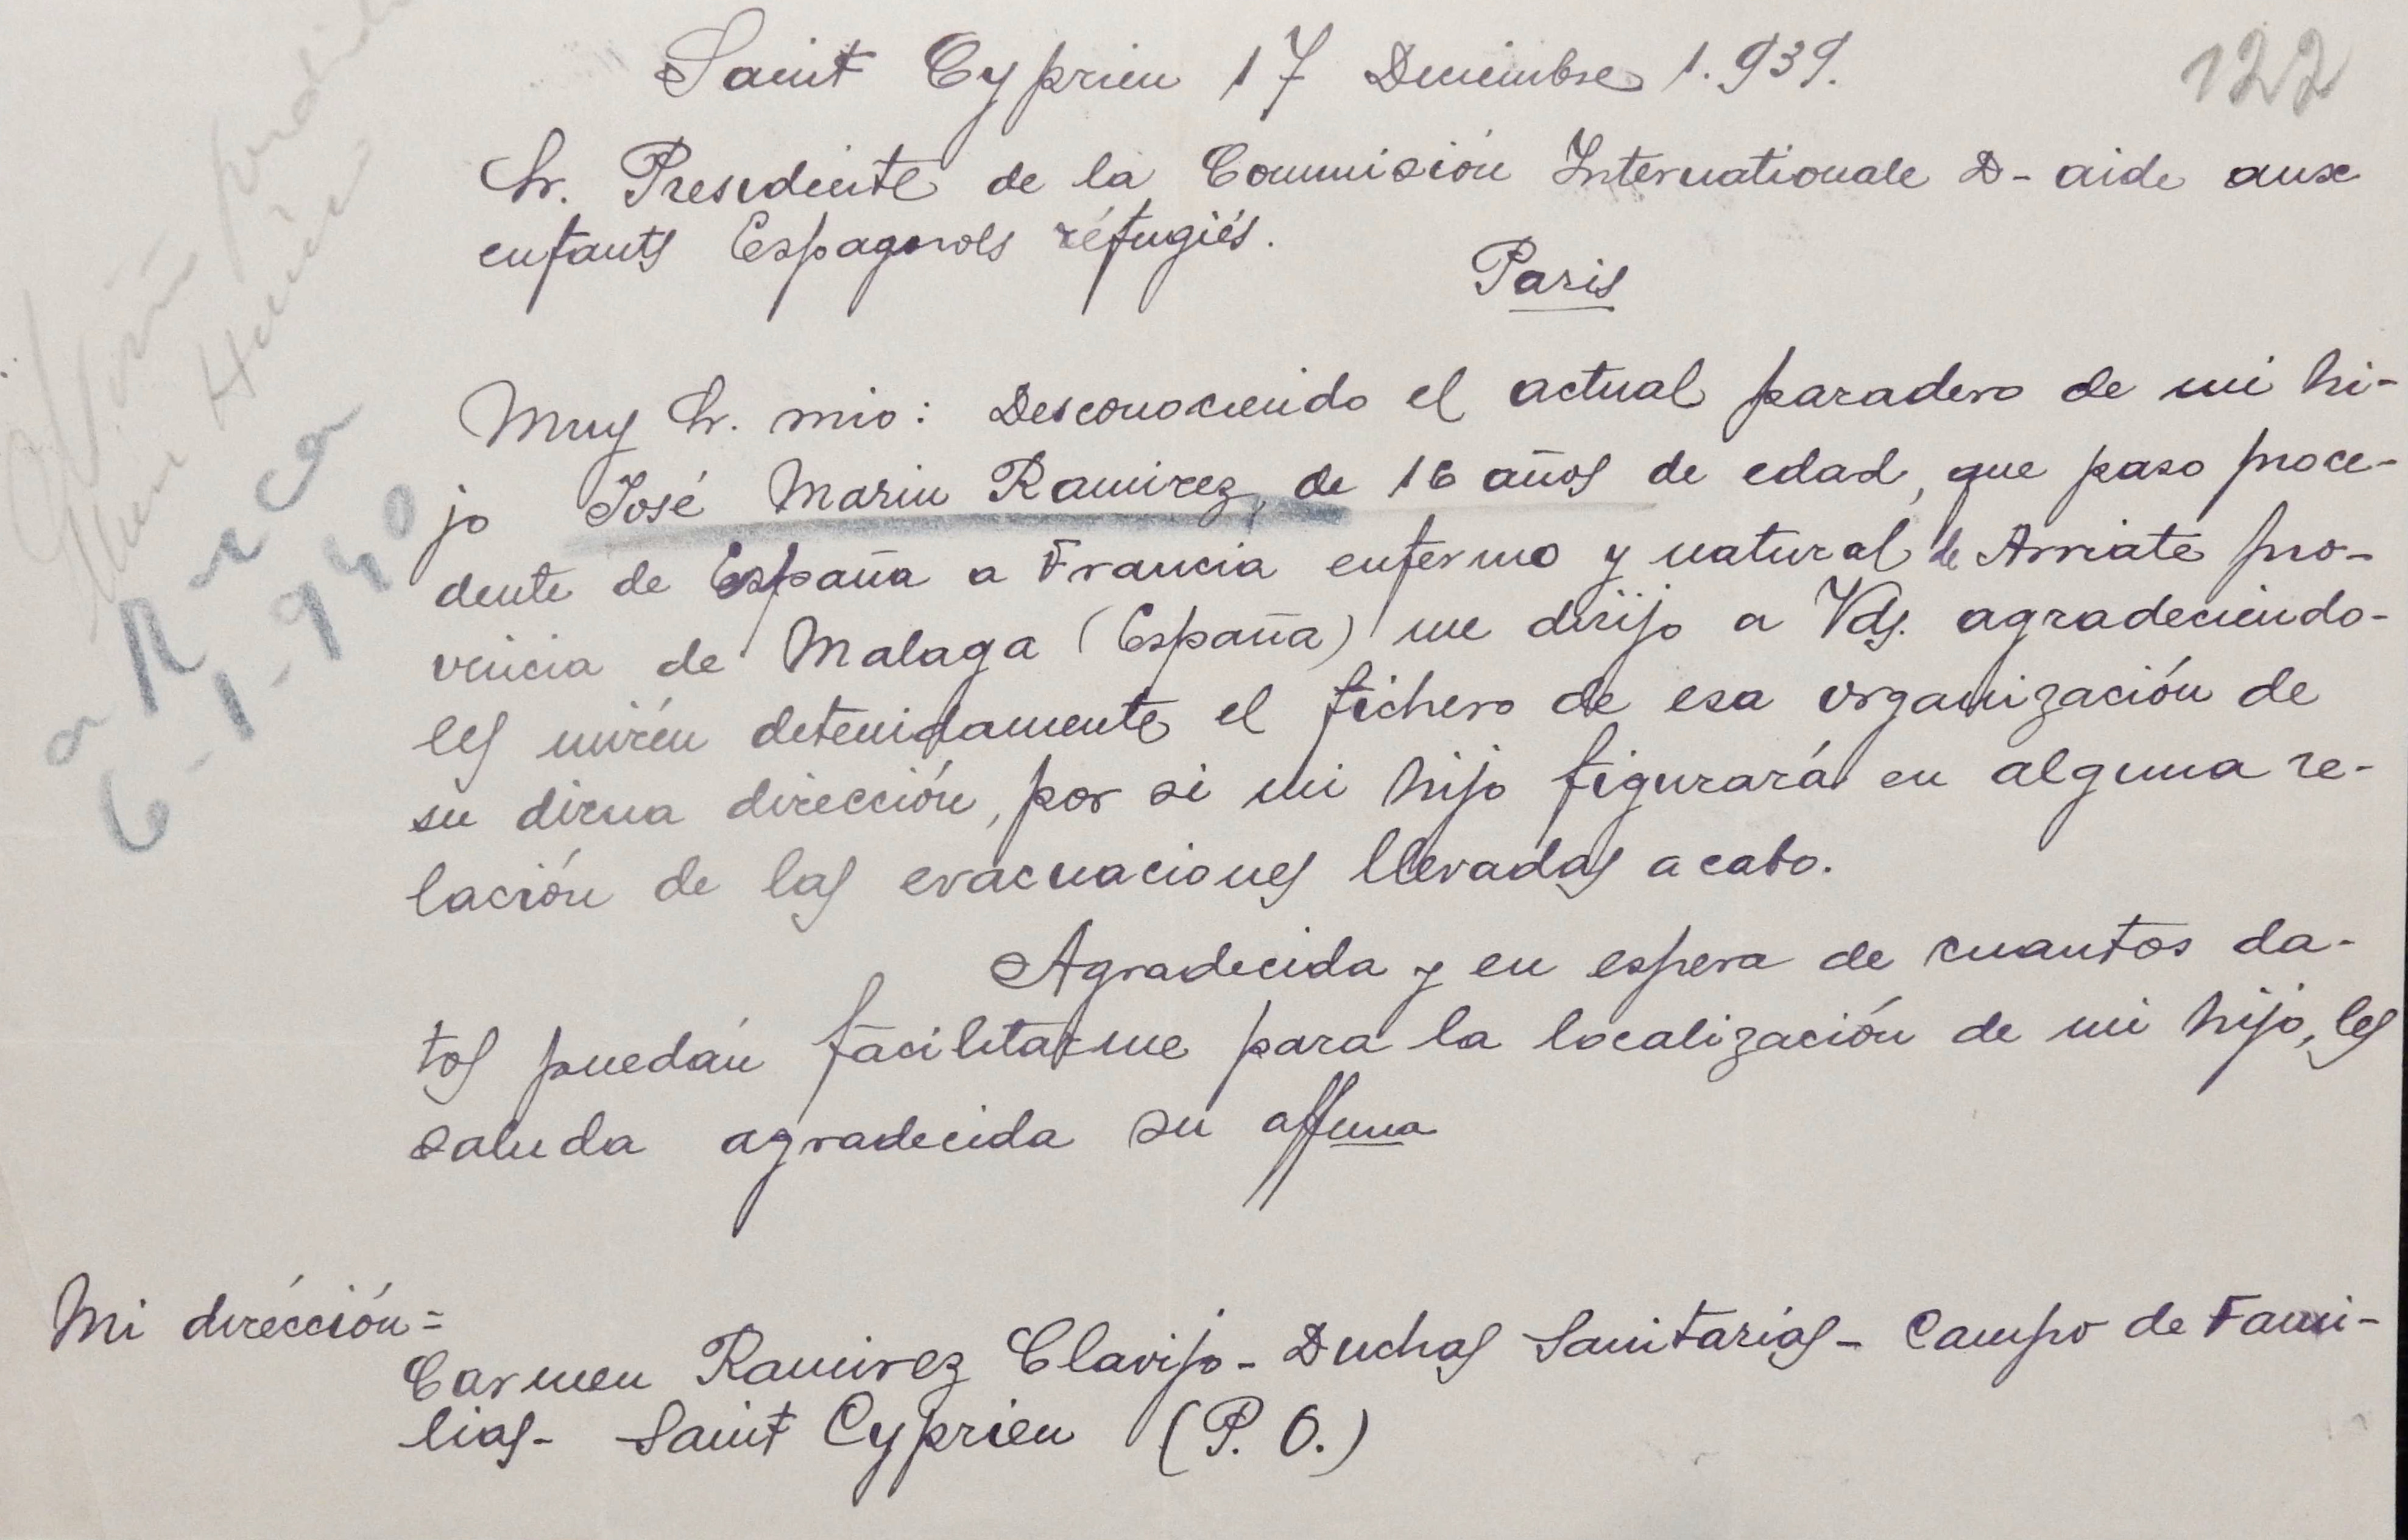 122
Saint Cyprien 17 Deciembre 1.939.
Sr. Presidente de la Commisión Internationale D- aide aux
enfants Espagnols réfugiés.
Paris
Muy Sr. mio: Desconociendo el actual paradero de mi hi-
jo José Marin Ramirez, de 16 años de edad, que paso proce-
dente de España a Francia enfermo y natural de Arriate pro-
vincia de Malaga (España) me dirijo a Vds. agradeciendo-
les mirén detenidamente el fichero de esa organización de
su dirna dirección, por si mi hijo figurará en alguna re-
lación de las evacuaciones llevadas a cabo.
Agradecida y en espera de cuantos da-
tos puedán facilitarme para la localización de mi hijo, les
saluda agradecida su affma
Mi dirección=
Carmen Ramirez Clavijo- Duchas Sanitarias- Campo de Fami-
lias- Saint Cyprien (P. O.)
6-1-940